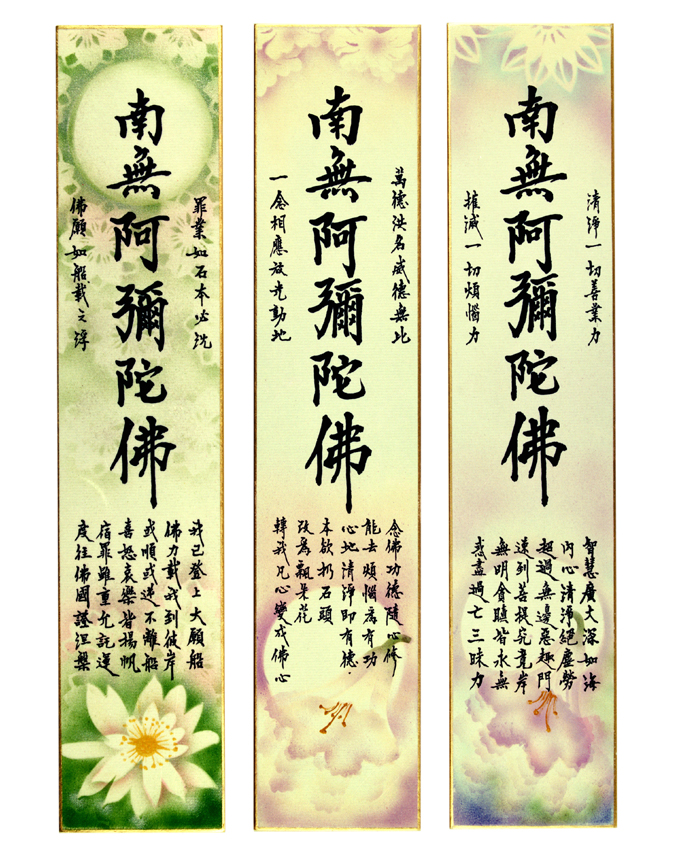 清淨一切善業力
南無阿彌陀佛
摧滅一切煩惱力
智慧廣大深如海
內心清淨絕塵勞
超過無邊惡趣門
速到菩提究竟岸
無明貪瞋皆永無
惑盡過亡三昧力
萬德洪名威德無比
南無阿彌陀佛
一念相應放光動地
念佛功德隨心修
能去煩惱為有功
心地清淨即有德.
本欲扔石頭
改為飄朵花
轉我凡心變成佛心
罪業如石本必沈
南無阿彌陀佛
佛願如船載之浮
我已登上大願船
佛力載我到彼岸
或順或逆不離船
喜怒哀樂皆揚帆
宿罪雖重允託運
度往佛國證涅槃